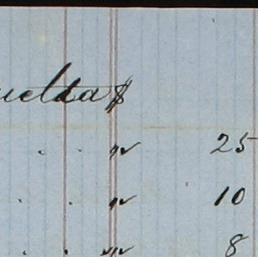 uelta $
. . " 25
. . " 10
. . " 8